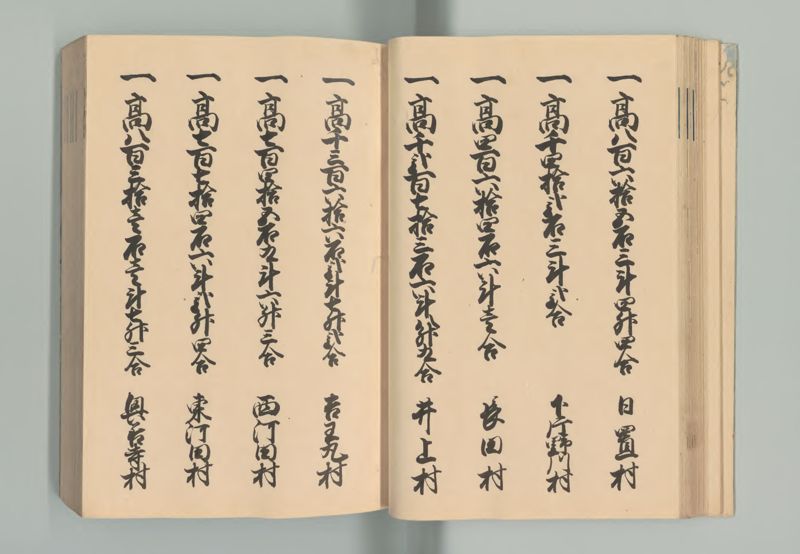 一高八百六拾五石三斗四升四合 日置村
一高千四拾弐石三斗弐合 下片野川村
一高四百六拾四石六斗壱合 長田村
一高千弐百七拾三石六斗八升五合 井上村
一高千三百六拾六石弐斗七升弐合 吉王丸村
一高七百四拾五石九斗六升三合 西河田村
一高七百七拾四石六斗弐升四合 東河田村
一高八百三拾壱石壱斗七升三合 興善寺村